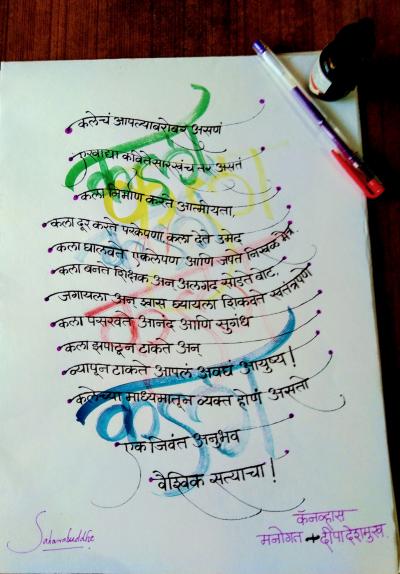 कलेचं आपल्याबरोबर असणं
एखाद्या कवितेसारखंच तर असतं
कला निर्माण करते आत्मीयता,
कला दूर करते परकेपणा, कला देते उमेद
कला घालवते एकलेपण आणि जपते निखळ मैत्र
कला बनते शिक्षक अन् अलगद सोडते वाट,
जगायला अन् श्वास घ्यायला शिकवते स्वतंत्रपणे
कला पसरवते आनंद आणि सुगंध
कला झपाटून टाकते अन्
व्यापून टाकते आपलं अवघं आयुष्य!
कलेच्या माध्यमातून व्यक्त होणं असतो
एक जिवंत अनुभव
वैश्विक सत्याचा!
कॅनव्हास
मनोगत दीपा देशमुख
Sahasrabuddhe
कला
कला
कला
कला